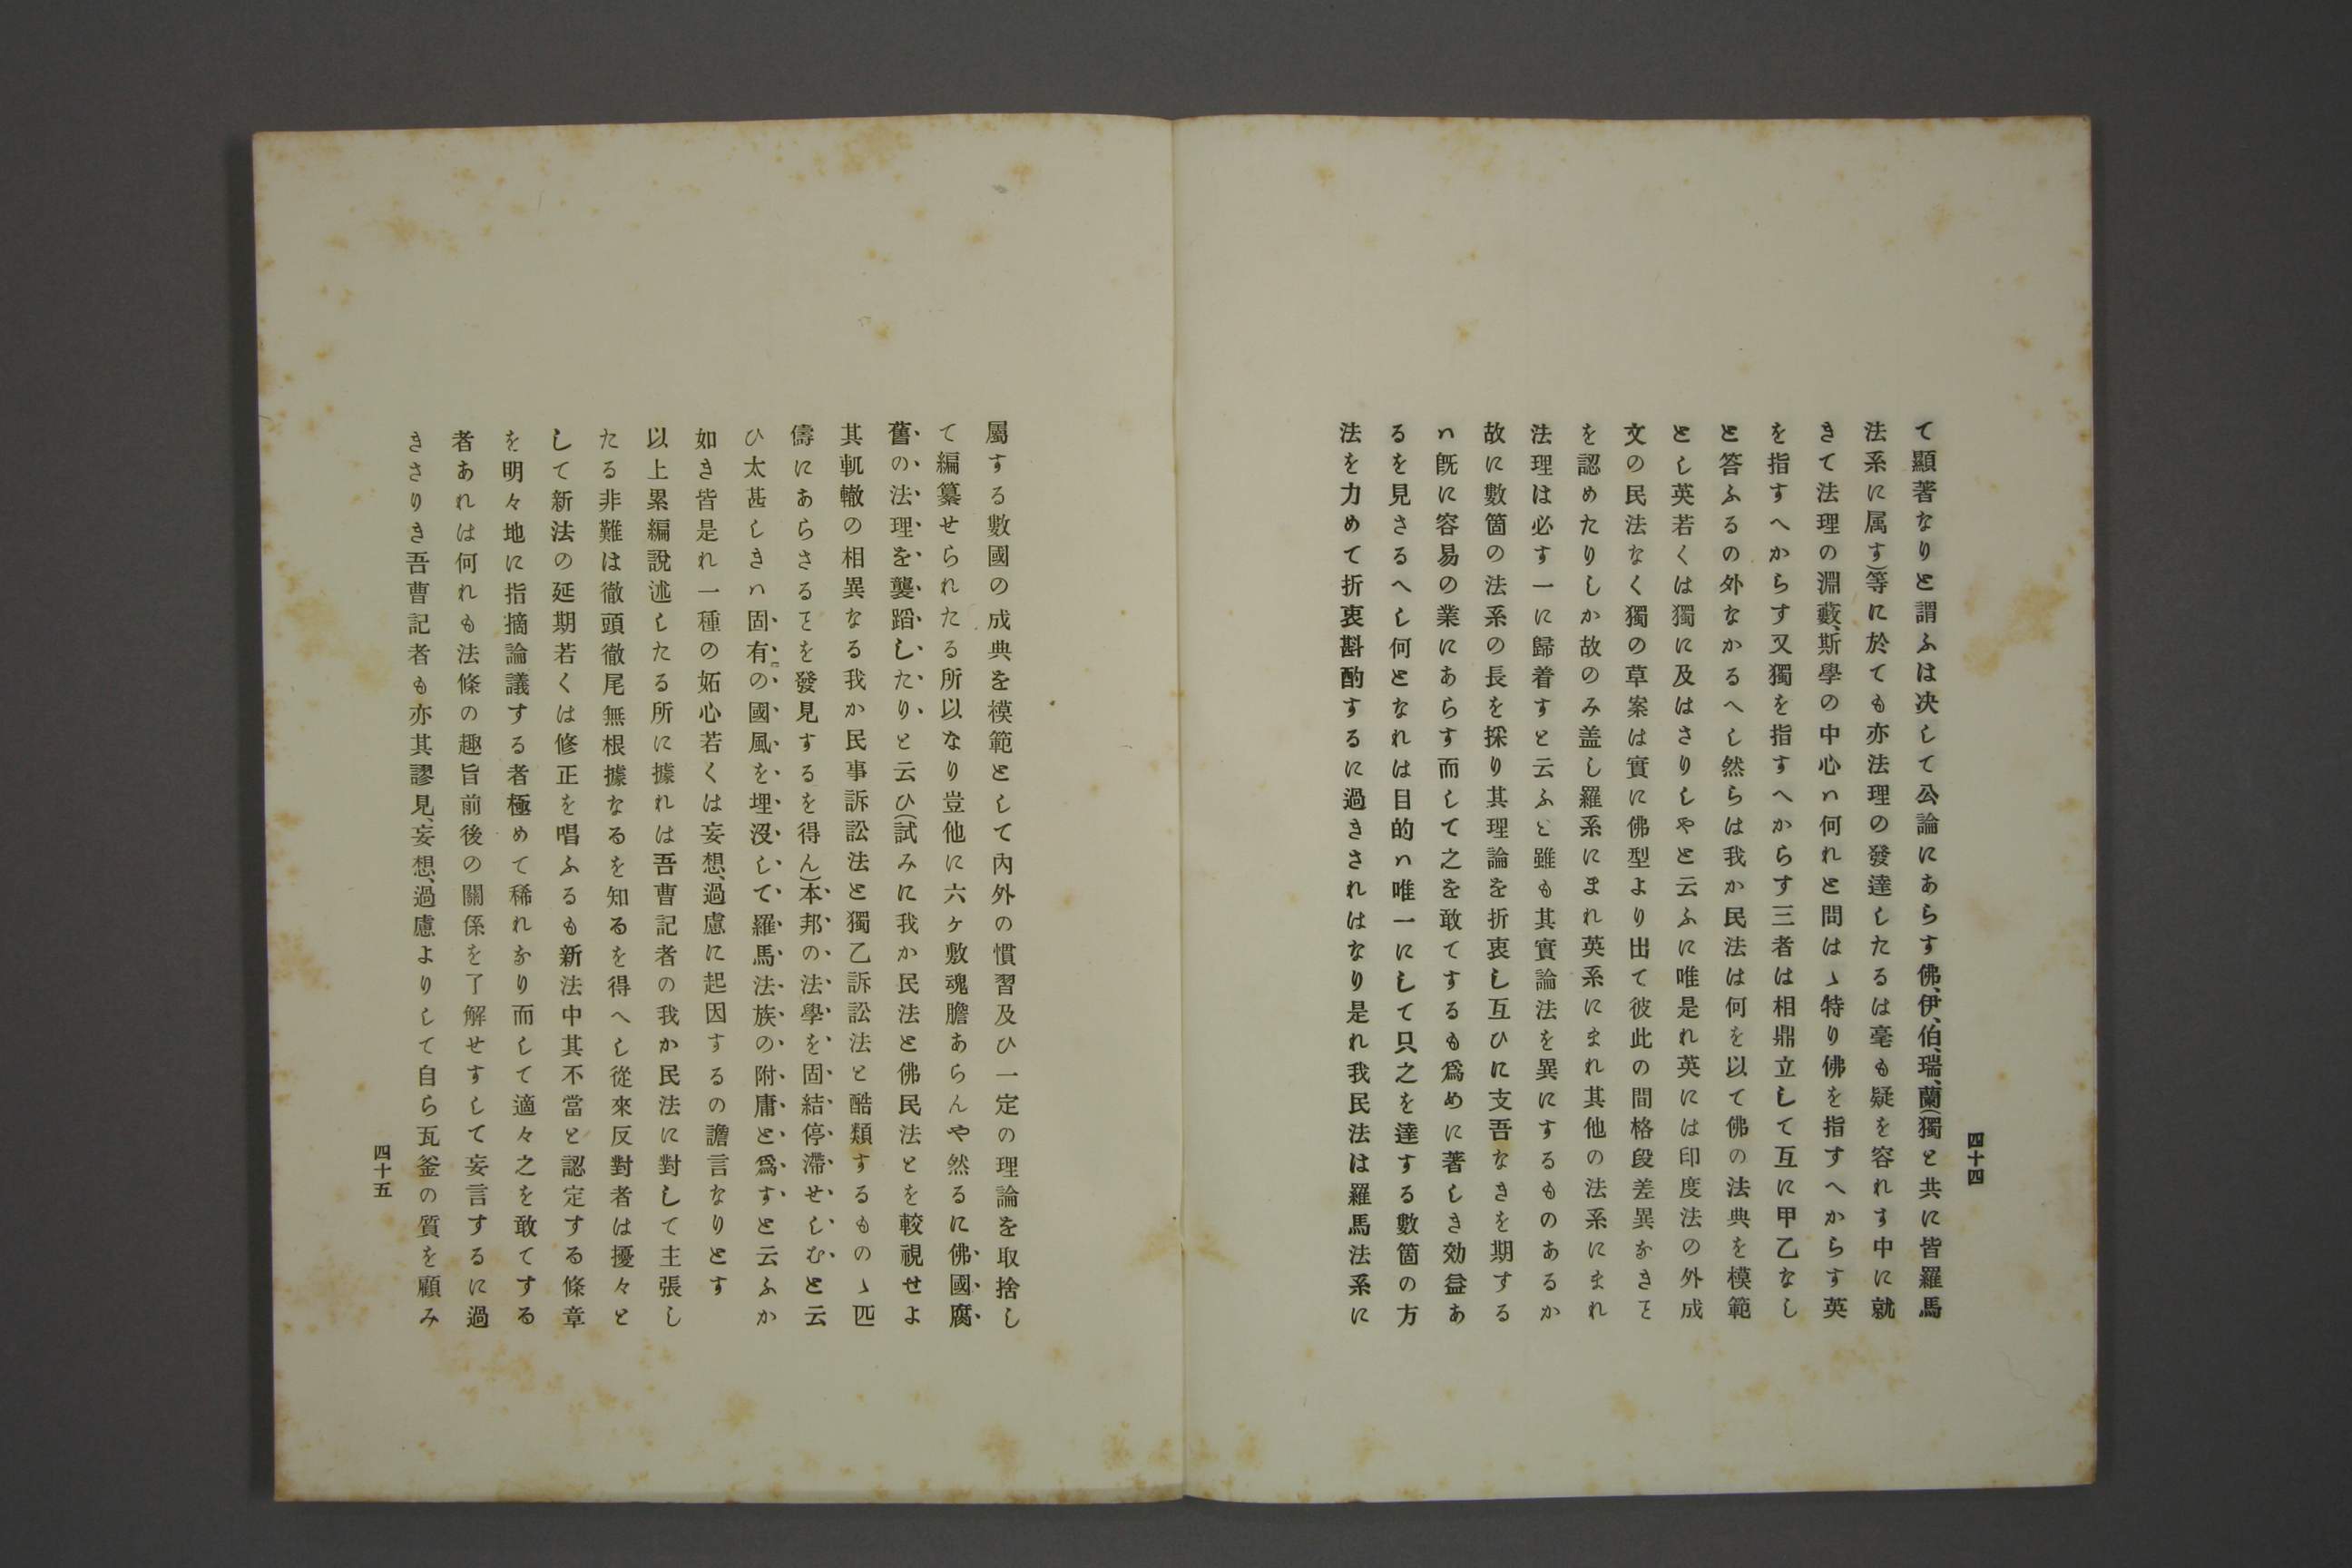 四十四
て顯著なりと謂ふは决して公論にあらす佛、伊、伯、瑞、蘭(獨と共に皆羅馬
法系に属す)等に於ても亦法理の發達したるは毫も疑を容れす中に就
きて法理の淵藪、斯學の中心ハ何れと問はゝ特り佛を指すへからす英
を指すへからす又獨を指すへからす三者は相鼎立して互に甲乙なし
と答ふるの外なかるへし然らは我か民法は何を以て佛の法典を模範
とし英若くは獨に及はさりしやと云ふに唯是れ英には印度法の外成
文の民法なく獨の草案は實に佛型より出て彼此の間格段差異なきヿ
を認めたりしか故のみ盖し羅系にまれ英系にまれ其他の法系にまれ
法理は必す一に歸着すと云ふと雖も其實論法を異にするものあるか
故に數箇の法系の長を採り其理論を折衷し互ひに支吾なきを期する
ハ旣に容易の業にあらす而して之を敢てするも爲めに著しき効益あ
るを見さるへし何となれは目的ハ唯一にして只之を達する數箇の方
法を力めて折衷斟酌するに過きされはなり是れ我民法は羅馬法系に
屬する數國の成典を模範として內外の慣習及ひ一定の理論を取捨し
て編纂せられたる所以なり豈他に六ヶ敷魂膽あらんや然るに佛國腐
舊の法理を襲蹈したりと云ひ(試みに我か民法と佛民法とを較視せよ
其軌轍の相異なる我か民事訴訟法と獨乙訴訟法と酷類するものゝ匹
儔にあらさるヿを發見するを得ん)本邦の法學を固結停滯せしむと云
ひ太甚しきハ固有の國風を埋沒して羅馬法族の附庸と爲すと云ふか
如き皆是れ一種の妬心若くは妄想、過慮に起因するの譫言なりとす
以上累編說述したる所に據れは吾曹記者の我か民法に對して主張し
たる非難は徹頭徹尾無根據なるを知るを得へし從來反對者は擾々と
して新法の延期若くは修正を唱ふるも新法中其不當と認定する條章
を明々地に指摘論議する者極めて稀れなり而して適々之を敢てする
者あれは何れも法條の趣旨前後の關係を了解せすして妄言するに過
きさりき吾曹記者も亦其謬見、妄想、過慮よりして自ら瓦釜の質を顧み
四十五